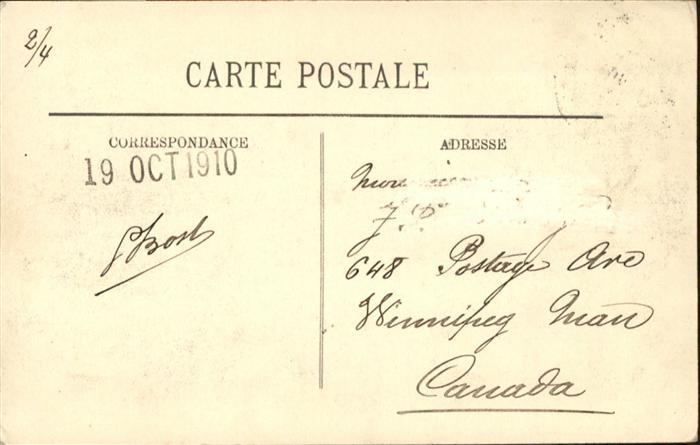 2/4
CARTE POSTALE
CORRESPONDANCE
19 OCT 1910
ADRESSE
648 Postage Ave
Winnipeg Man
Canada